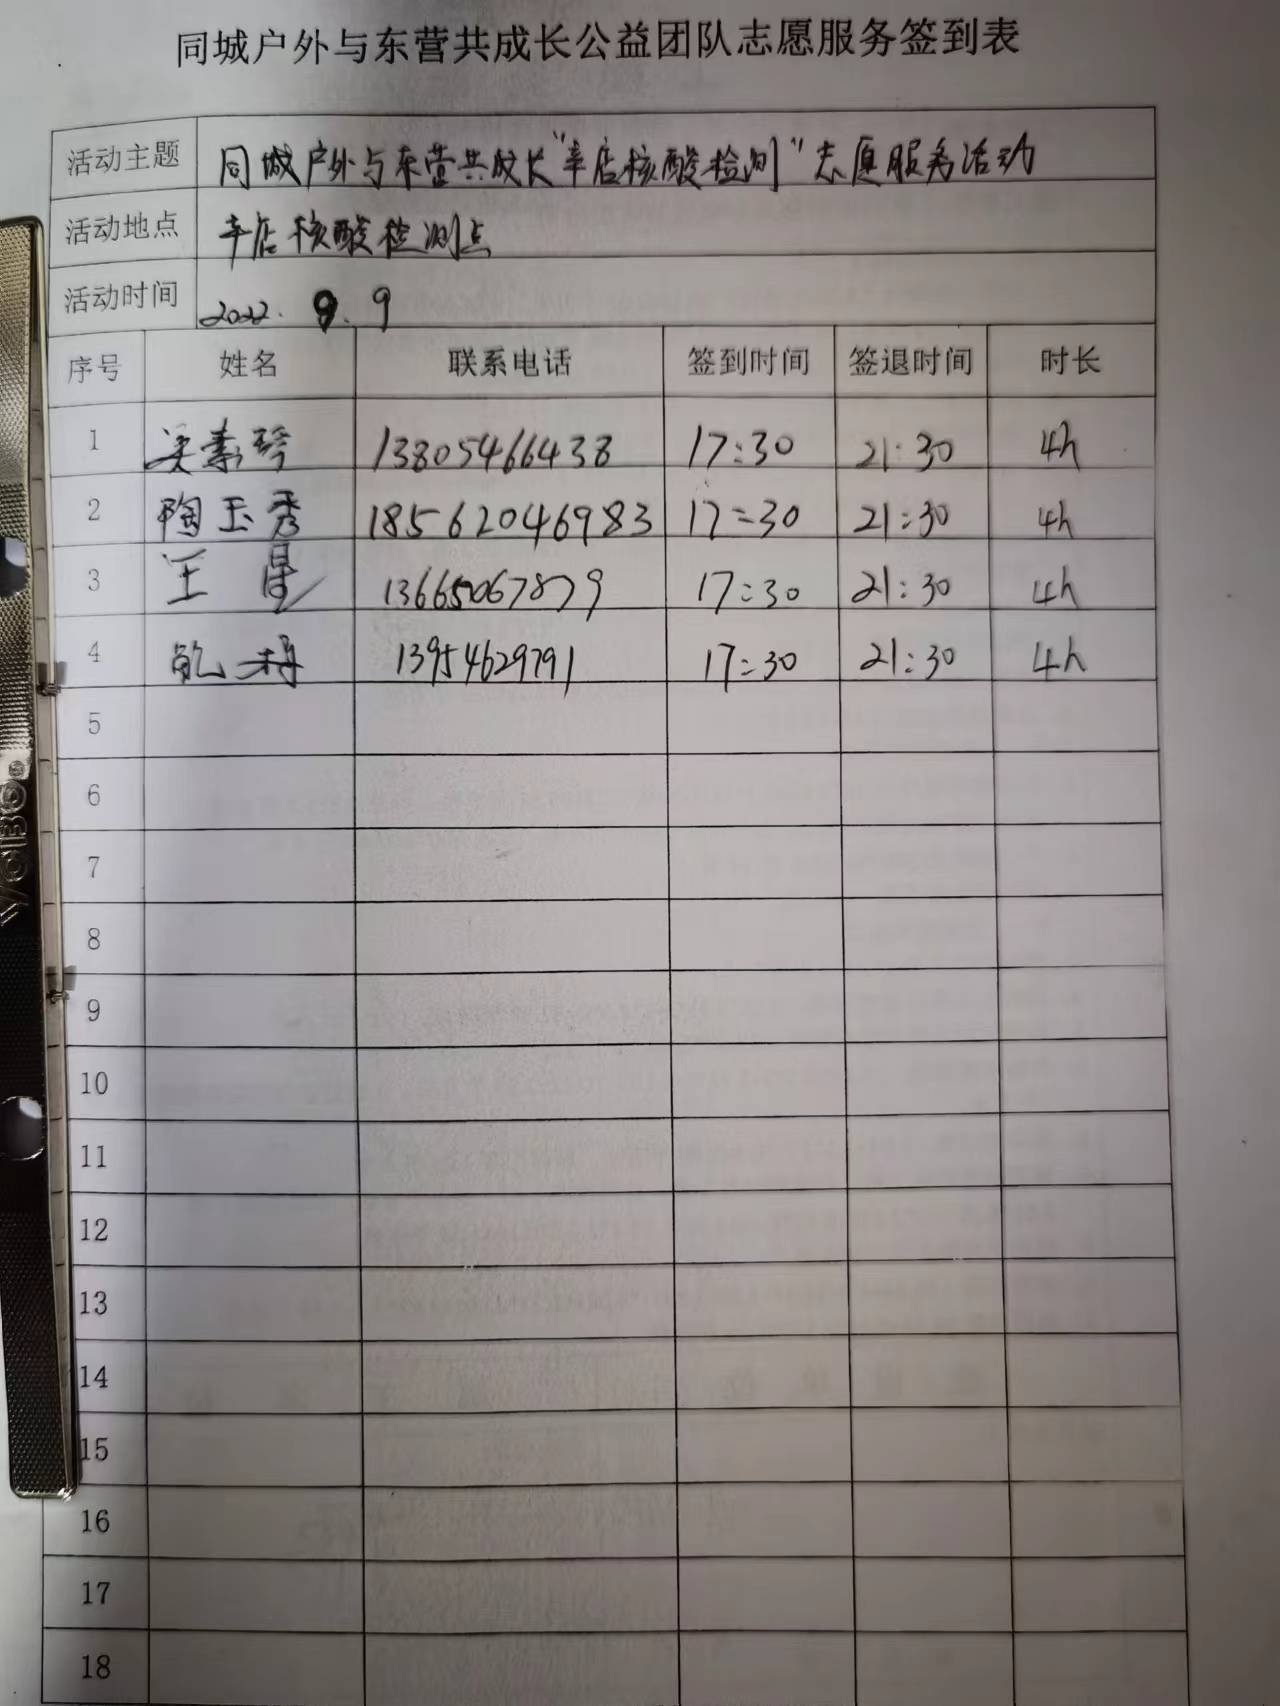 同城户外与东营共成长公益团队志愿服务签到表
活动主题 同城户外与东营共成长"辛店核酸检测"志愿服务活动
活动地点 辛店核酸检测点
活动时间 2022.9.9
序号 姓名 联系电话 签到时间 签退时间 时长
1 吴素琴 13805466438 17:30 21:30 4h
2 陶玉秀 18562046983 17:30 21:30 4h
3 王星 13665067879 17:30 21:30 4h
4 13954629791 17:30 21:30 4h
5
6
7
8
9
10
11
12
13
14
15
16
17
18